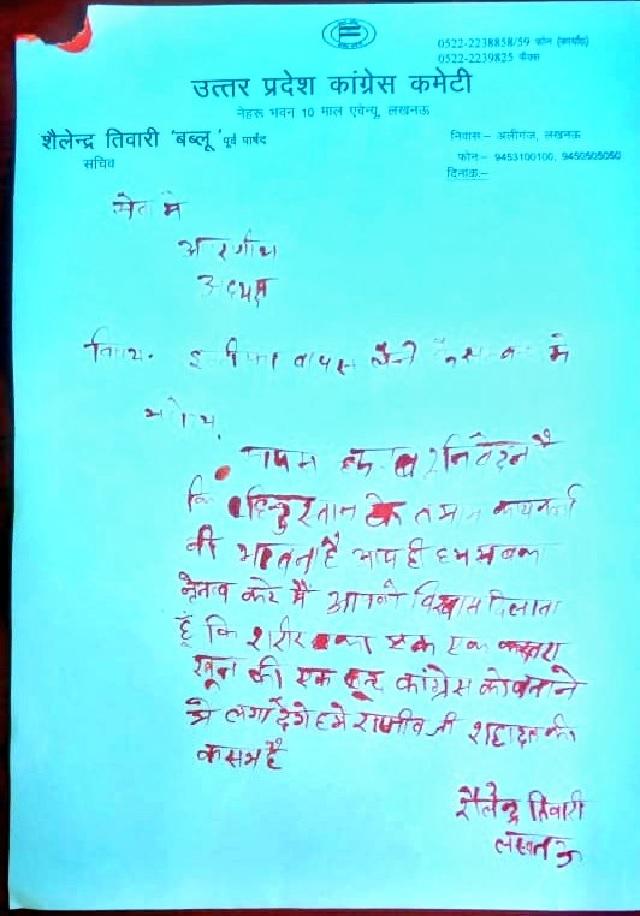 0522-2238858/59 फोन (कार्या०)
0522-2239825 फैक्स
उत्तर प्रदेश कांग्रेस कमेटी
नेहरू भवन 10 माल एवेन्यू, लखनऊ
शैलेन्द्र तिवारी 'बब्लू' पूर्व पार्षद
सचिव
निवास– अलीगंज, लखनऊ
फोन:– 9453100100, 9450505050
दिनांक:–
सेवा में
आदरणीय
अध्यक्ष
विषय- इस्तीफा वापस लेने के में
महोदय,
निवेदन है
कि हिन्दुस्तान के तमाम कार्यकर्ता
की भावना है आप ही हम सबका
करे मैं आपको विश्वास दिलाता
हूँ कि शरीर का एक एक कतरा
खून की एक कांग्रेस को बनाने
मे लगा देगे हमे राजीव जी शहादत की
कसम है
शैलेन्द्र तिवारी
लखनऊ